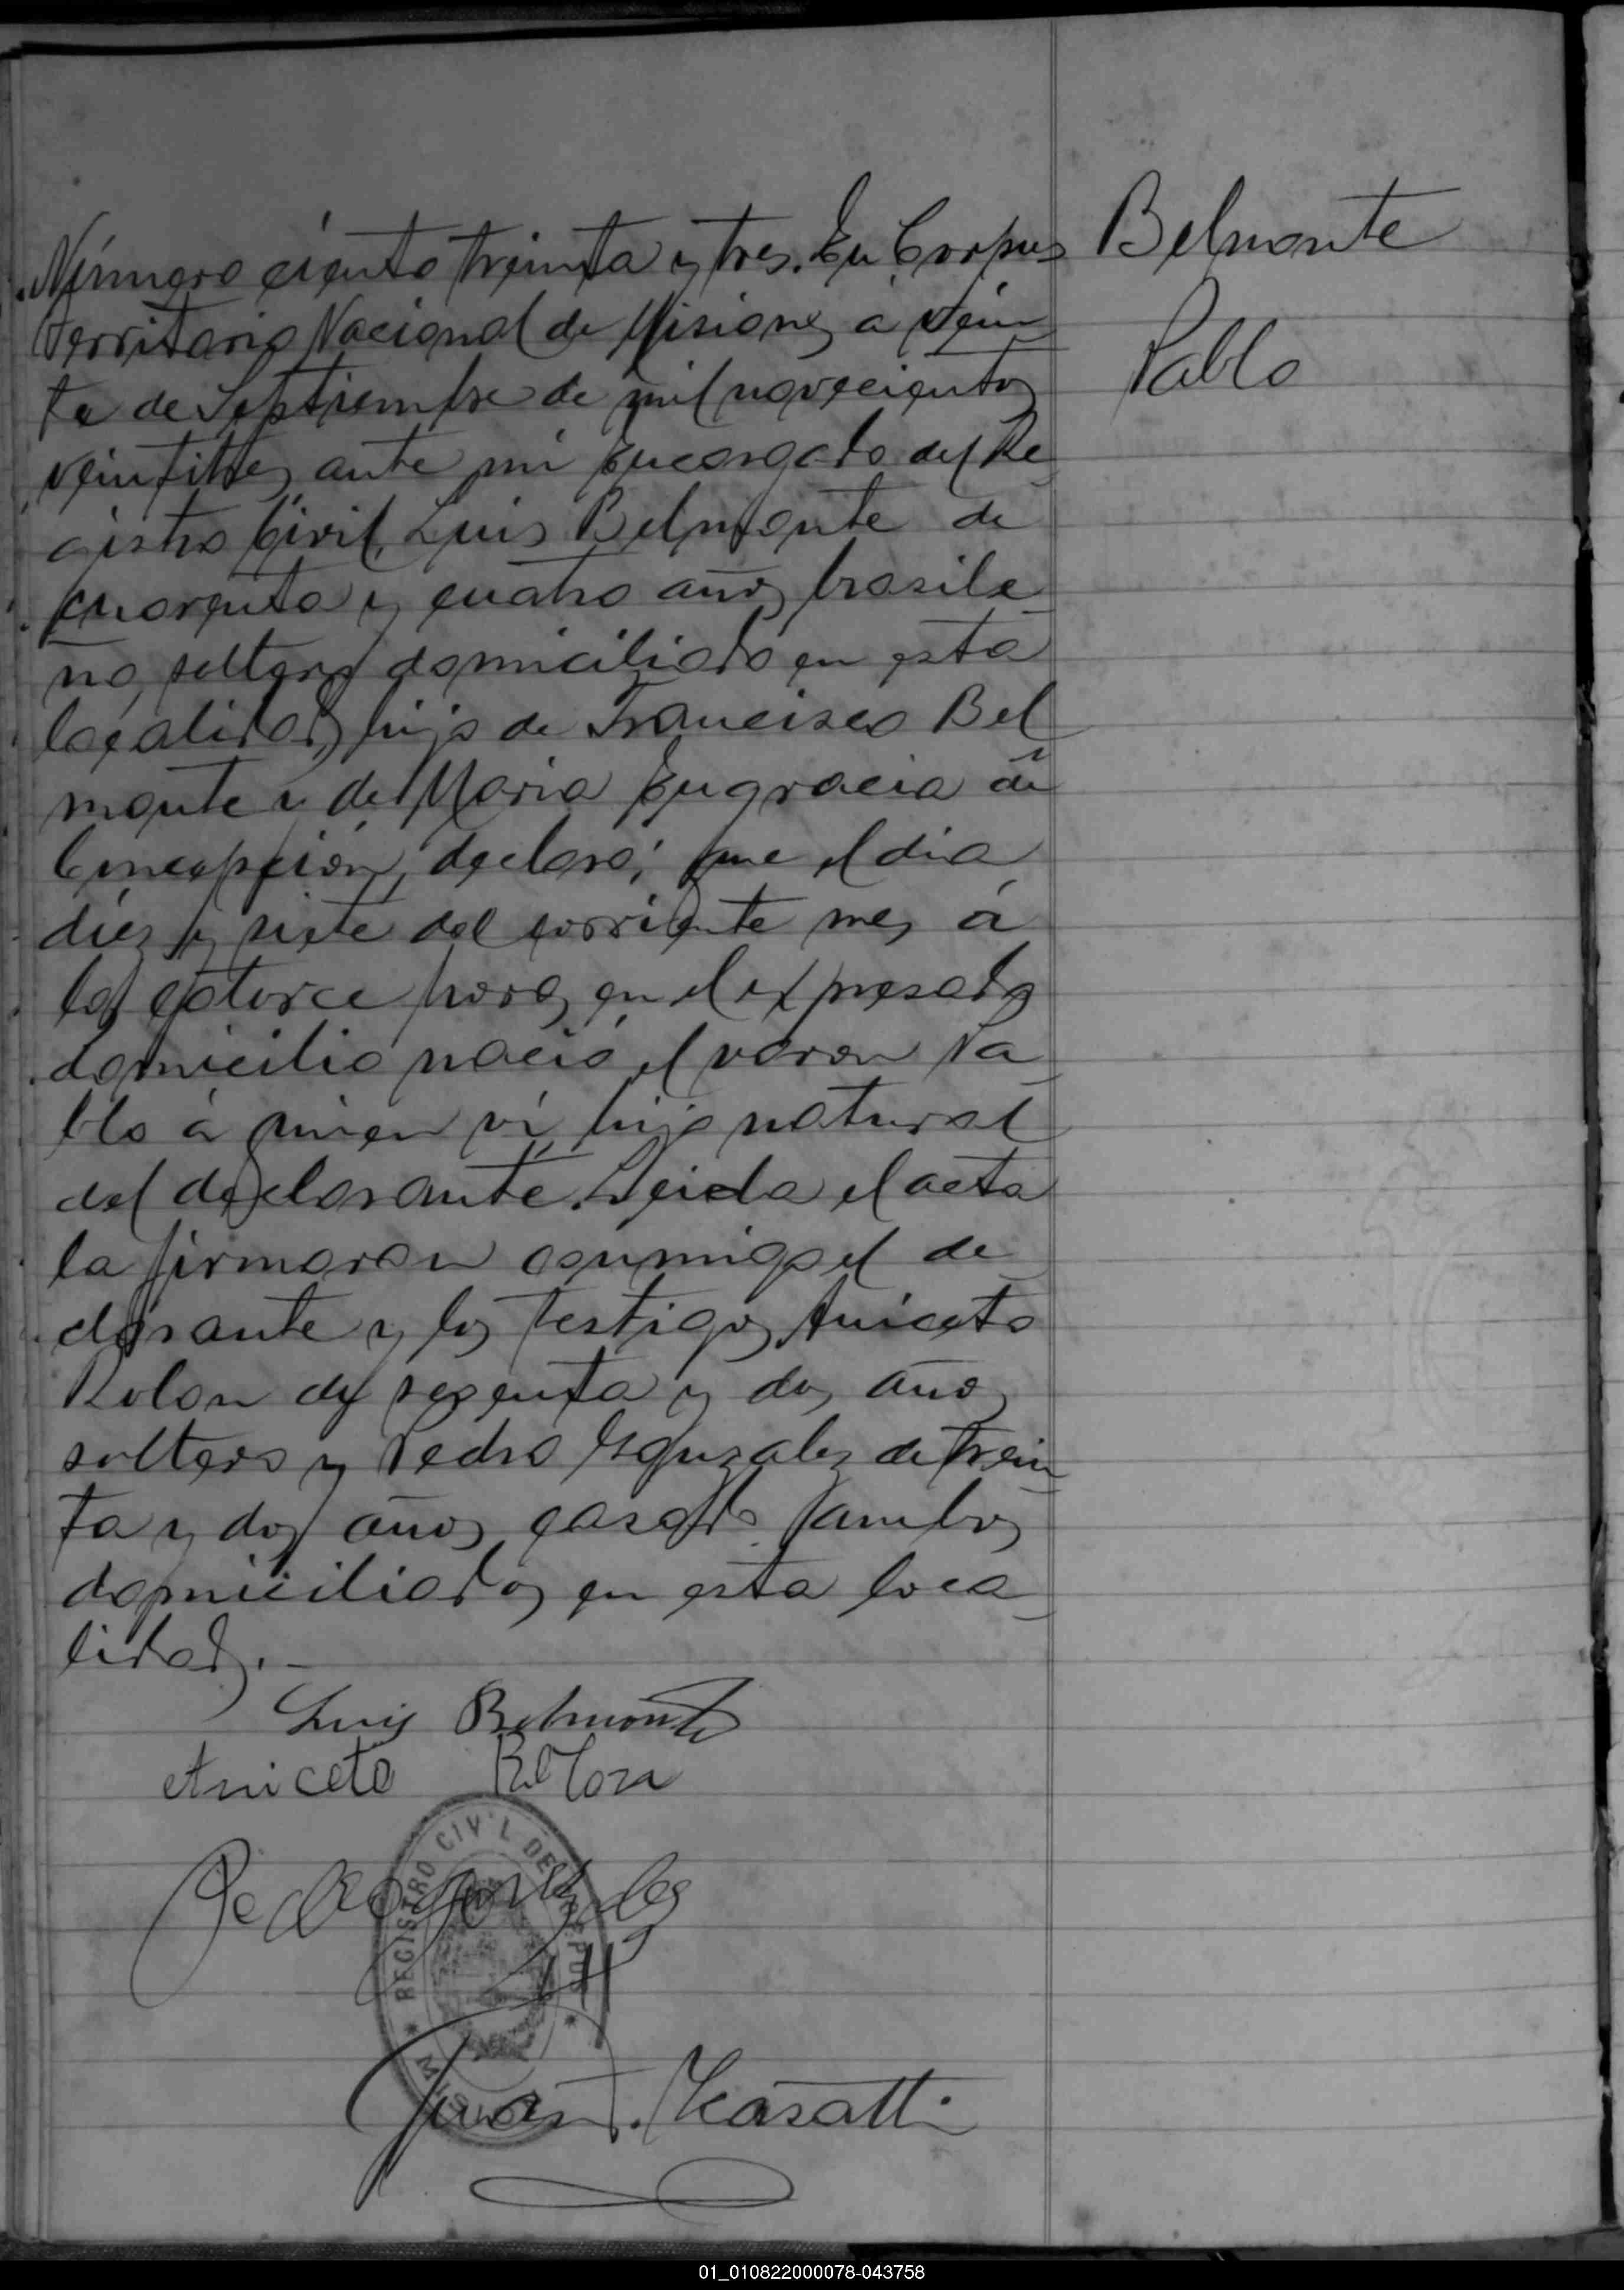 Número ciento treinta y tres. En Corpus
Territorio Nacional de Misiones a vein
te de Septiembre de mil novecientos
veintitres ante mi Encargado del Re
gistro Civil, Luis Belmonte de
cuarenta y cuatro años brasile
ño, soltero domiciliado en esta
localidad, hijo de Francisco Bel
monte y de Maria Engracia de
Concepción, declaró; que el dia
diez y siete del corriente mes á
las catorce horas en el expresado
domicilio nació el varon Pa
blo á quien ví, hijo natural
del declarante. Leida el acta
la firmaron conmigo el de
clarante y los testigos Aniceto
Rolon de sesenta y dos años
soltero y Pedro Gonzalez de trein
ta y dos años casado, ambos
domiciliados en esta loca
lidad.-
Luis Belmonte
Aniceto Rolon
Pedro Gonzales
REGISTRO CIVIL DE CORPUS
* MISIONES *
Juan . Kasatti
Belmonte
Pablo
01_010822000078-043758